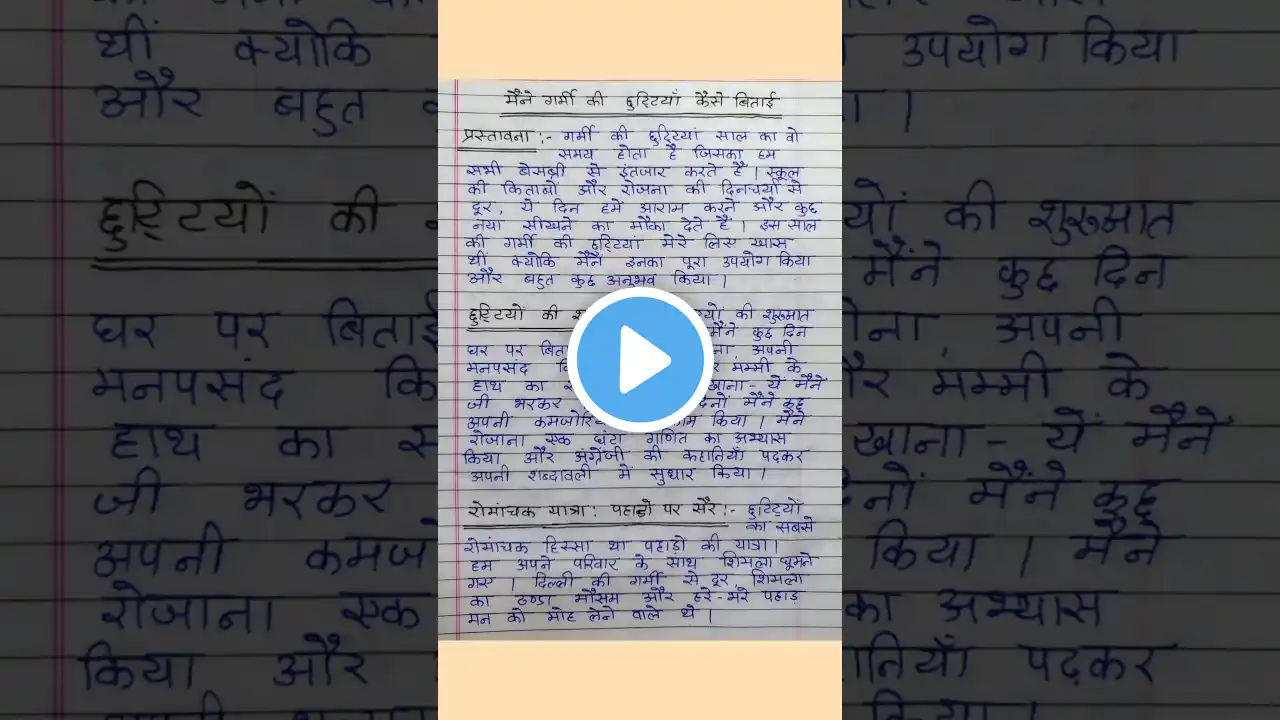 मैंने गर्मी की छुट्टियाँ कैसे बिताई
प्रस्तावना :- गर्मी की छुट्टियां साल का वो
समय होता है जिसका हम
सभी बेसब्री से इंतजार करते हैं। स्कूल
की किताबों और रोजना की दिनचर्या से
दूर, ये दिन हमें आराम करने और कुछ
नया सीखने का मौका देते हैं। इस साल
की गर्मी की छुट्टियां मेरे लिए खास
थीं क्योकि मैंने इनका पूरा उपयोग किया
और बहुत कुछ अनुभव किया।
छुट्टियों की यों की शुरूआत
मैंने कुछ दिन
घर पर अपनी
मनपसंद मम्मी के
हाथ का खाना - ये मैंने
जी भरकर मैंने कुछ
अपनी किया। मैंने
रोजाना एक घंटा गणित का अभ्यास
किया और अंग्रेजी की कहानियाँ पढ़कर
अपनी शब्दावली में सुधार किया।
रोमांचक यात्रा : पहाड़ो पर सैर :- छुट्टियों
का सबसे
रोमांचक हिस्सा था पहाड़ों की यात्रा।
हम अपने परिवार के साथ शिमला घूमने
गए। दिल्ली की गर्मी से दूर, शिमला
का ठण्डा मौसम और हरे-भरे पहाड़
मन को मोह लेने वाले थे।